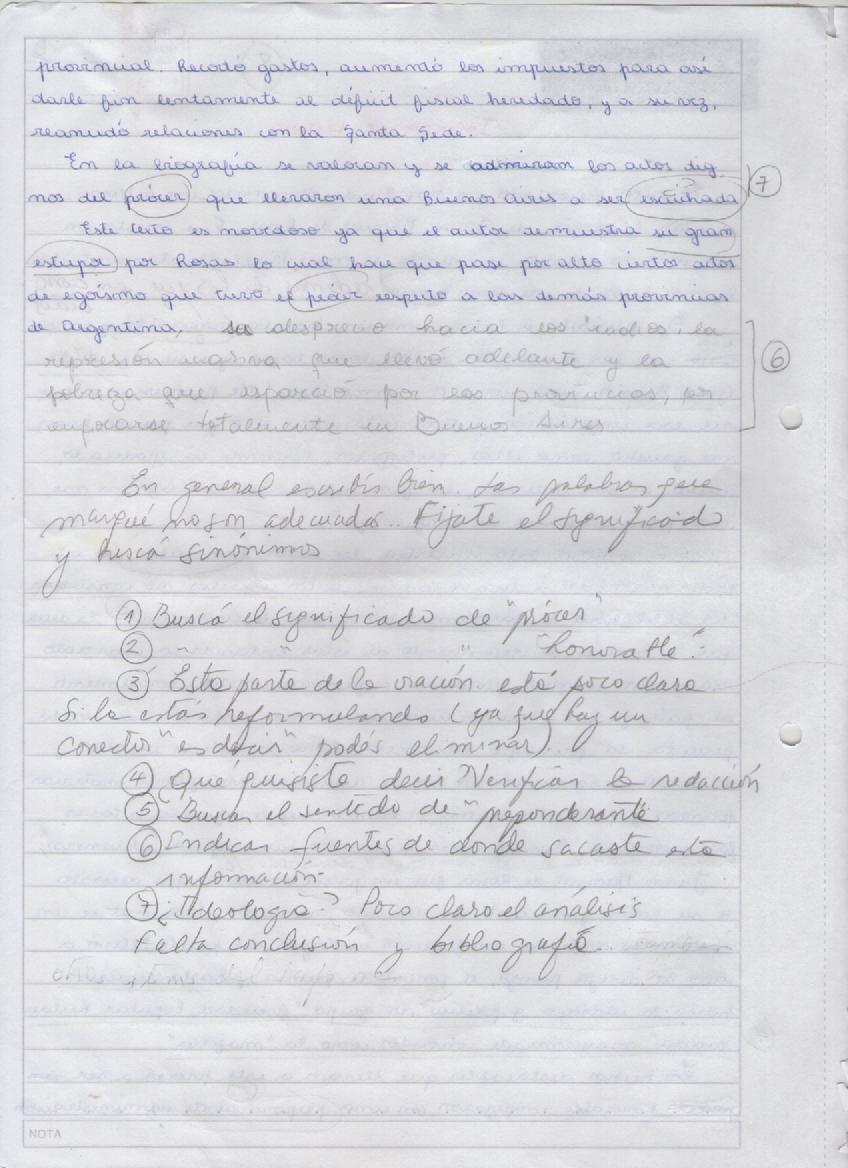 provincial. Recortó gastos, aumentó los impuestos para así
darle fin lentamente al déficit fiscal heredado, y a su vez,
reanudó relaciones con la Santa Sede.
En la biografía se valoran y se admiran los actos dig
nos del prócer que llevaron una Buenos Aires a ser escuchada 7
Este texto es novedoso ya que el autor demuestra su gran
estupor por Rosas lo cual hace que pase por alto ciertos actos
de egoísmo que tuvo el prócer respecto a las demás provincias
de Argentina, su desprecio hacia los indios, la
represión masiva que llevó adelante y la 6
pobreza que esparció por las provincias, por
enfocarse totalmente en Buenos Aires
En general escribís bien. Las palabras que
marqué no son adecuadas. Fijate el significado
y buscá sinónimos
1 Buscá el significado de "prócer"
2 " " " "honorable".
3 Esta parte de la oración está poco clara
Si la estás reformulando (ya que hay un
conector "es decir" podés eliminar).
4 ¿Qué quisiste decir? Verificar la redacción
5 Buscar el sentido de "preponderante
6 Indicar fuentes de donde sacaste esta
información.
7 ¿Ideología? Poco claro el análisis
Falta conclusión y bibliografía.
NOTA